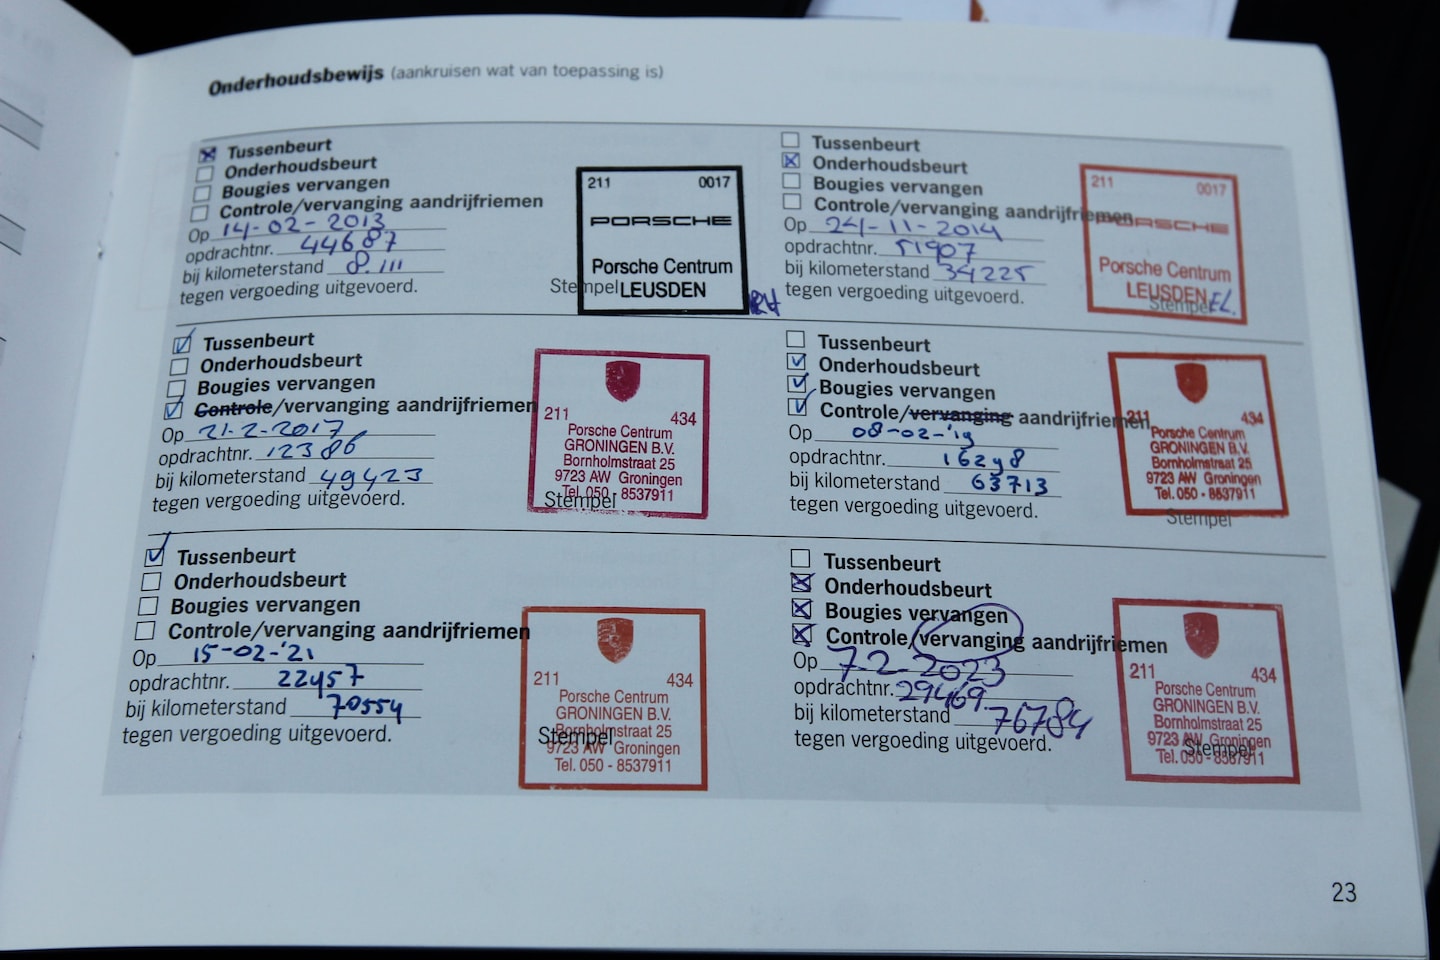 Onderhoudsbewijs (aankruisen wat van toepassing is)
Tussenbeurt
Onderhoudsbeurt
Bougies vervangen
Controle/vervanging aandrijfriemen
Op 14-02-2013
opdrachtnr. 44687
bij kilometerstand 8.111
tegen vergoeding uitgevoerd.
Stempel
211 0017
PORSCHE
Porsche Centrum
LEUSDEN
Tussenbeurt
Onderhoudsbeurt
Bougies vervangen
Controle/vervanging aandrijfriemen
Op 24-11-2014
opdrachtnr. 51907
bij kilometerstand 34225
tegen vergoeding uitgevoerd.
Stempel
211 0017
PORSCHE
Porsche Centrum
LEUSDEN
Tussenbeurt
Onderhoudsbeurt
Bougies vervangen
Controle/vervanging aandrijfriemen
Op 21-2-2017
opdrachtnr. 12386
bij kilometerstand 49423
tegen vergoeding uitgevoerd.
Stempel
211 434
Porsche Centrum
GRONINGEN B.V.
Bornholmstraat 25
9723 AW Groningen
Tel. 050 - 8537911
Tussenbeurt
Onderhoudsbeurt
Bougies vervangen
Controle/vervanging aandrijfriemen
Op 08-02-'19
opdrachtnr. 16298
bij kilometerstand 63713
tegen vergoeding uitgevoerd.
Stempel
211 434
Porsche Centrum
GRONINGEN B.V.
Bornholmstraat 25
9723 AW Groningen
Tel. 050 - 8537911
Tussenbeurt
Onderhoudsbeurt
Bougies vervangen
Controle/vervanging aandrijfriemen
Op 15-02-'21
opdrachtnr. 22457
bij kilometerstand 70554
tegen vergoeding uitgevoerd.
Stempel
211 434
Porsche Centrum
GRONINGEN B.V.
Bornholmstraat 25
9723 AW Groningen
Tel. 050 - 8537911
Tussenbeurt
Onderhoudsbeurt
Bougies vervangen
Controle/vervanging aandrijfriemen
Op 7-2-2023
opdrachtnr. 29469
bij kilometerstand 76784
tegen vergoeding uitgevoerd.
Stempel
211 434
Porsche Centrum
GRONINGEN B.V.
Bornholmstraat 25
9723 AW Groningen
Tel. 050 - 8537911
23